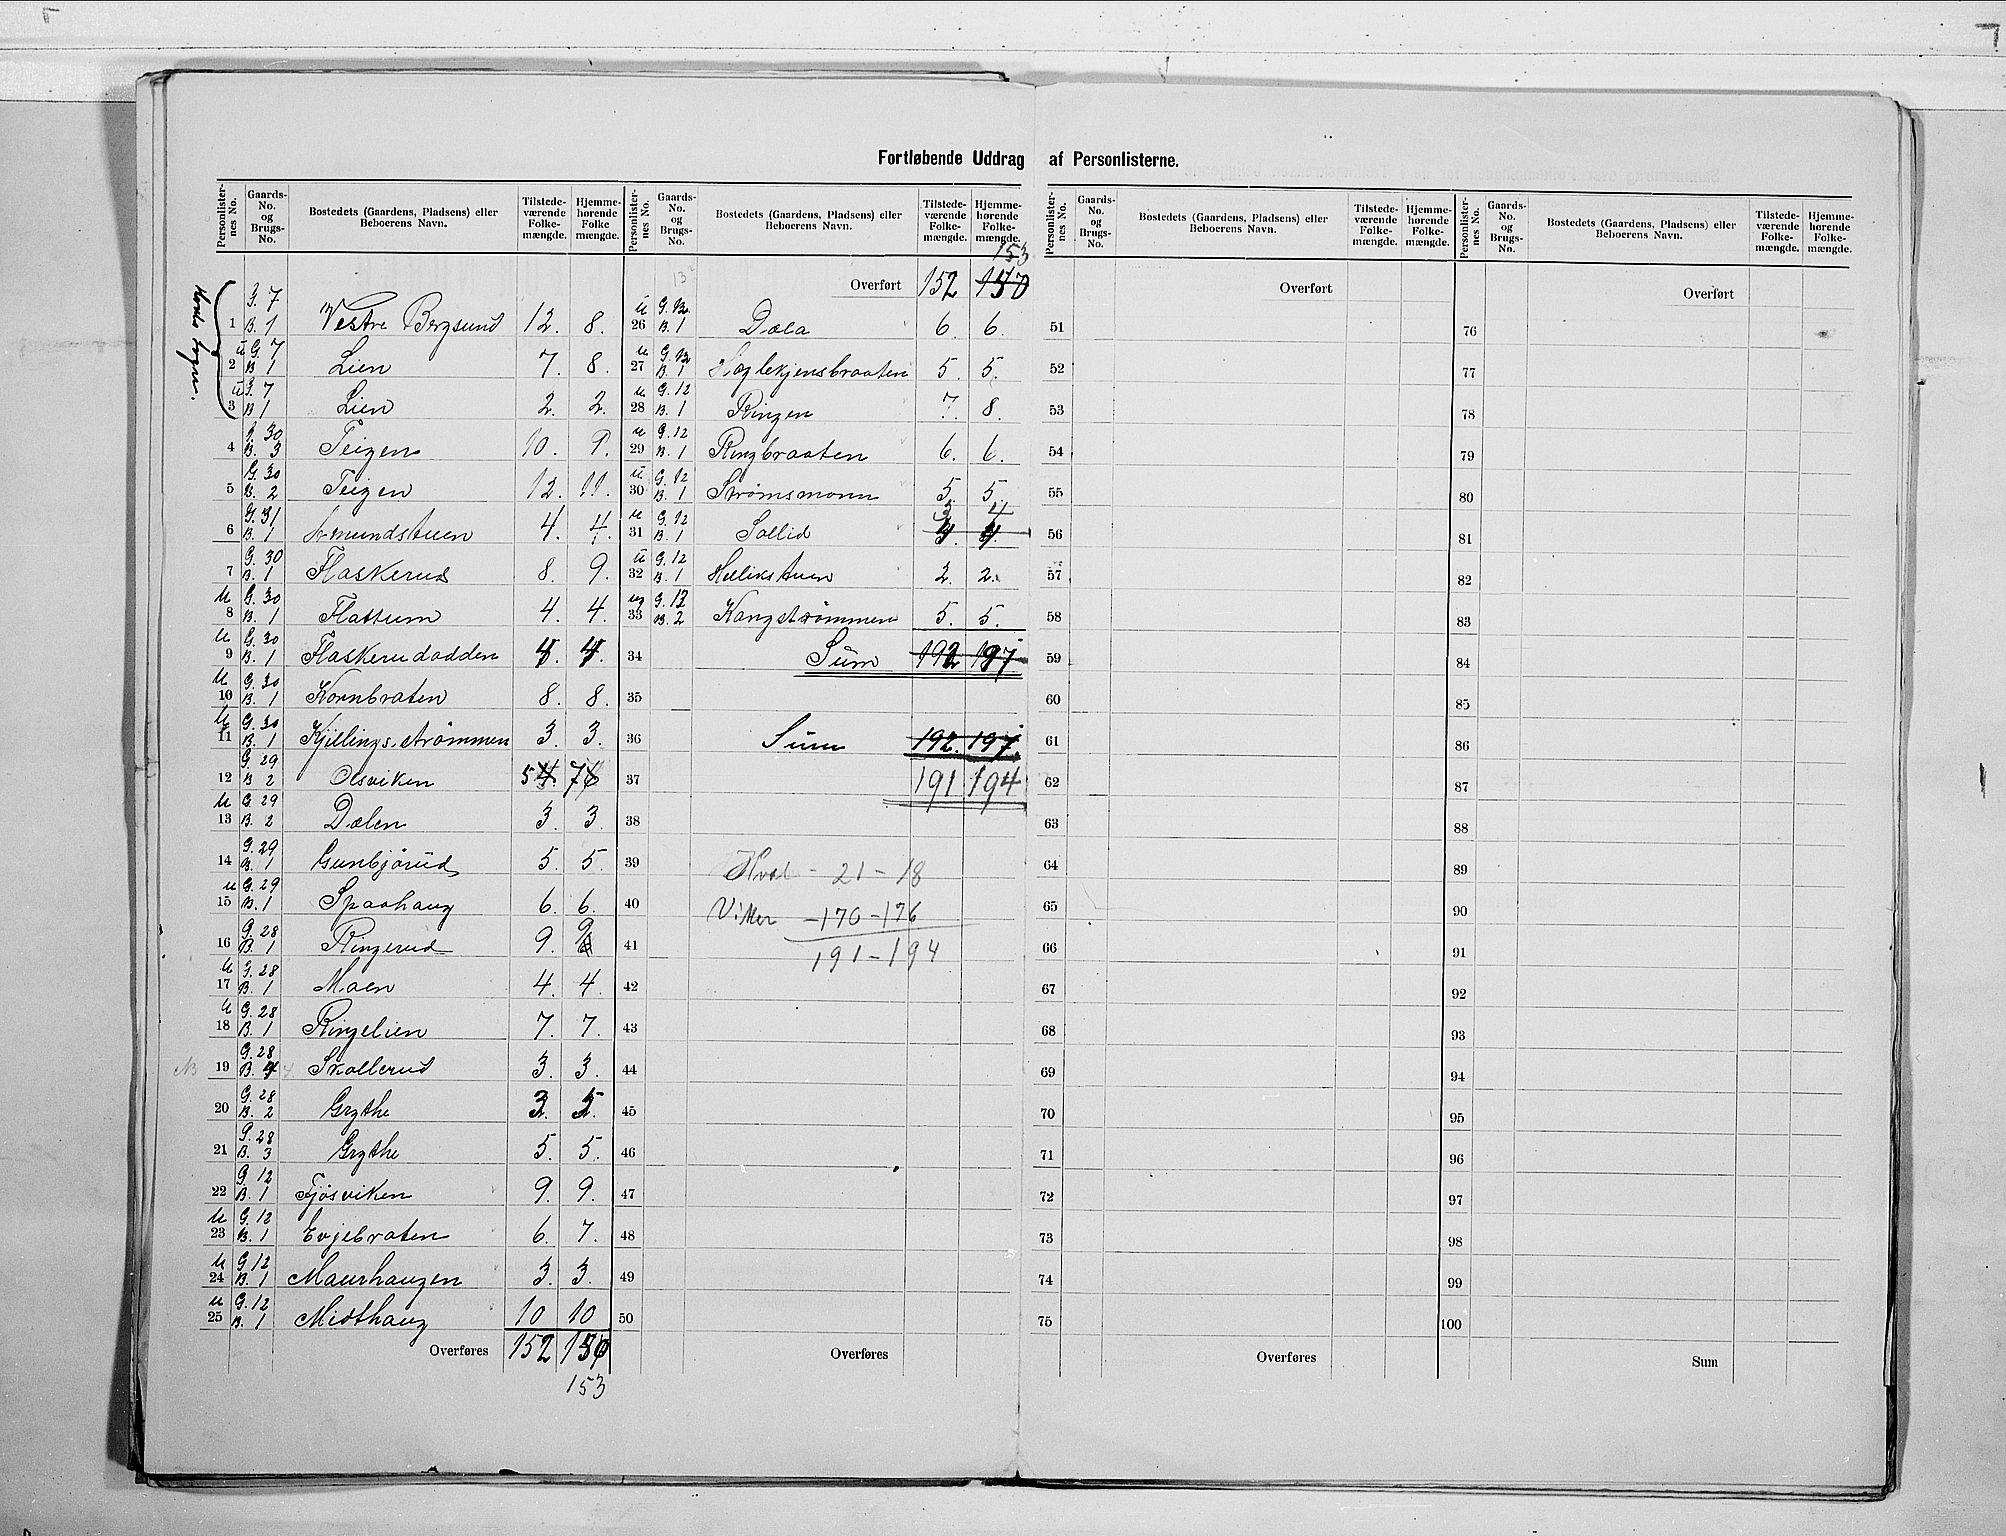 Fortløbende Uddrag af Personlisterne.
Personlisternes No. Gaards-No. og Brugs-No. Bostedets (Gaardens, Pladsens) eller Beboerens Navn. Tilstedeværende Folkemængde. Hjemmehørende Folkemængde.
G. 7
1 B. 1 Vestre Bergsund 12. 8.
u G. 7
2 B 1 Lien 7. 8.
u G. 7
3 B 1 Lien 2. 2.
G. 30
4 B. 3 Teigen 10. 9.
G. 30
5 B. 2 Teigen 12. 11.
G. 31
6 B. 1 Amundstuen 4. 4.
G. 30
7 B. 1 Flaskerud 8. 9.
u G. 30
8 B. 1 Flattum 4. 4.
u G. 30
9 B. 1 Flaskerudodden 4. 4.
u G. 30
10 B. 1 Kornbraten 8. 8.
u G. 30
11 B. 1 Kjillings-strømmen 3. 3.
G. 29
12 B 2 Olsviken 5 4. 7 6
u G. 29
13 B. 2 Dælen 3. 3.
G. 29
14 B. 1 Gunbjørud 5. 5.
u G. 29
15 B. 1 Spaahaug 6. 6.
G. 28
16 B. 1 Ringerud 9. 9
u G. 28
17 B. 1 Moen 4. 4.
u G. 28
18 B. 1 Ringelien 7. 7.
G. 28
19 B. 4 Skollerud 3. 3.
G. 28
20 B. 2 Grythe 3. 5.
G. 28
21 B. 3 Grythe 5. 5.
G. 12
22 B. 1 Fjøsviken 9. 9.
u G. 12
23 B. 1 Evjebraten 6. 7.
u G. 12
24 B. 1 Maurhaugen 3. 3.
u G. 12
25 B. 1 Midthaug 10 10
Overføres 152 150
153
Personlisternes No. Gaards-No. og Brugs-No. Bostedets (Gaardens, Pladsens) eller Beboerens Navn. Tilstedeværende Folkemængde. Hjemmehørende Folkemængde.
153
Overført 152 150
u G. 12
26 B. 1 Dæla 6. 6.
u G. 12
27 B. 1 Haglekjensbraaten 5. 5.
u G. 12
28 B. 1 Ringen 7. 8.
u G. 12
29 B. 1 Ringbraaten 6. 6.
u G. 12
30 B. 1 Strømsmoen 5. 5.
u G. 12 3 4
31 B. 1 Sollid 4. 4.
u G. 12
32 B. 1 Hellikstuen 2. 2.
G. 12
33 B. 2 Kongstrømmen 5. 5.
34 Sum 192 197
35
36 Sum 192. 197.
37 191 194
38
39 Hval - 21 - 18
40 Viker - 170 - 176
41 191 - 194
42
43
44
45
46
47
48
49
50
Overføres
Personlisternes No. Gaards-No. og Brugs-No. Bostedets (Gaardens, Pladsens) eller Beboerens Navn. Tilstedeværende Folkemængde. Hjemmehørende Folkemængde.
Overført
51
52
53
54
55
56
57
58
59
60
61
62
63
64
65
66
67
68
69
70
71
72
73
74
75
Overføres
Personlisternes No. Gaards-No. og Brugs-No. Bostedets (Gaardens, Pladsens) eller Beboerens Navn. Tilstedeværende Folkemængde. Hjemmehørende Folkemængde.
Overført
76
77
78
79
80
81
82
83
84
85
86
87
88
89
90
91
92
93
94
95
96
97
98
99
100
Sum